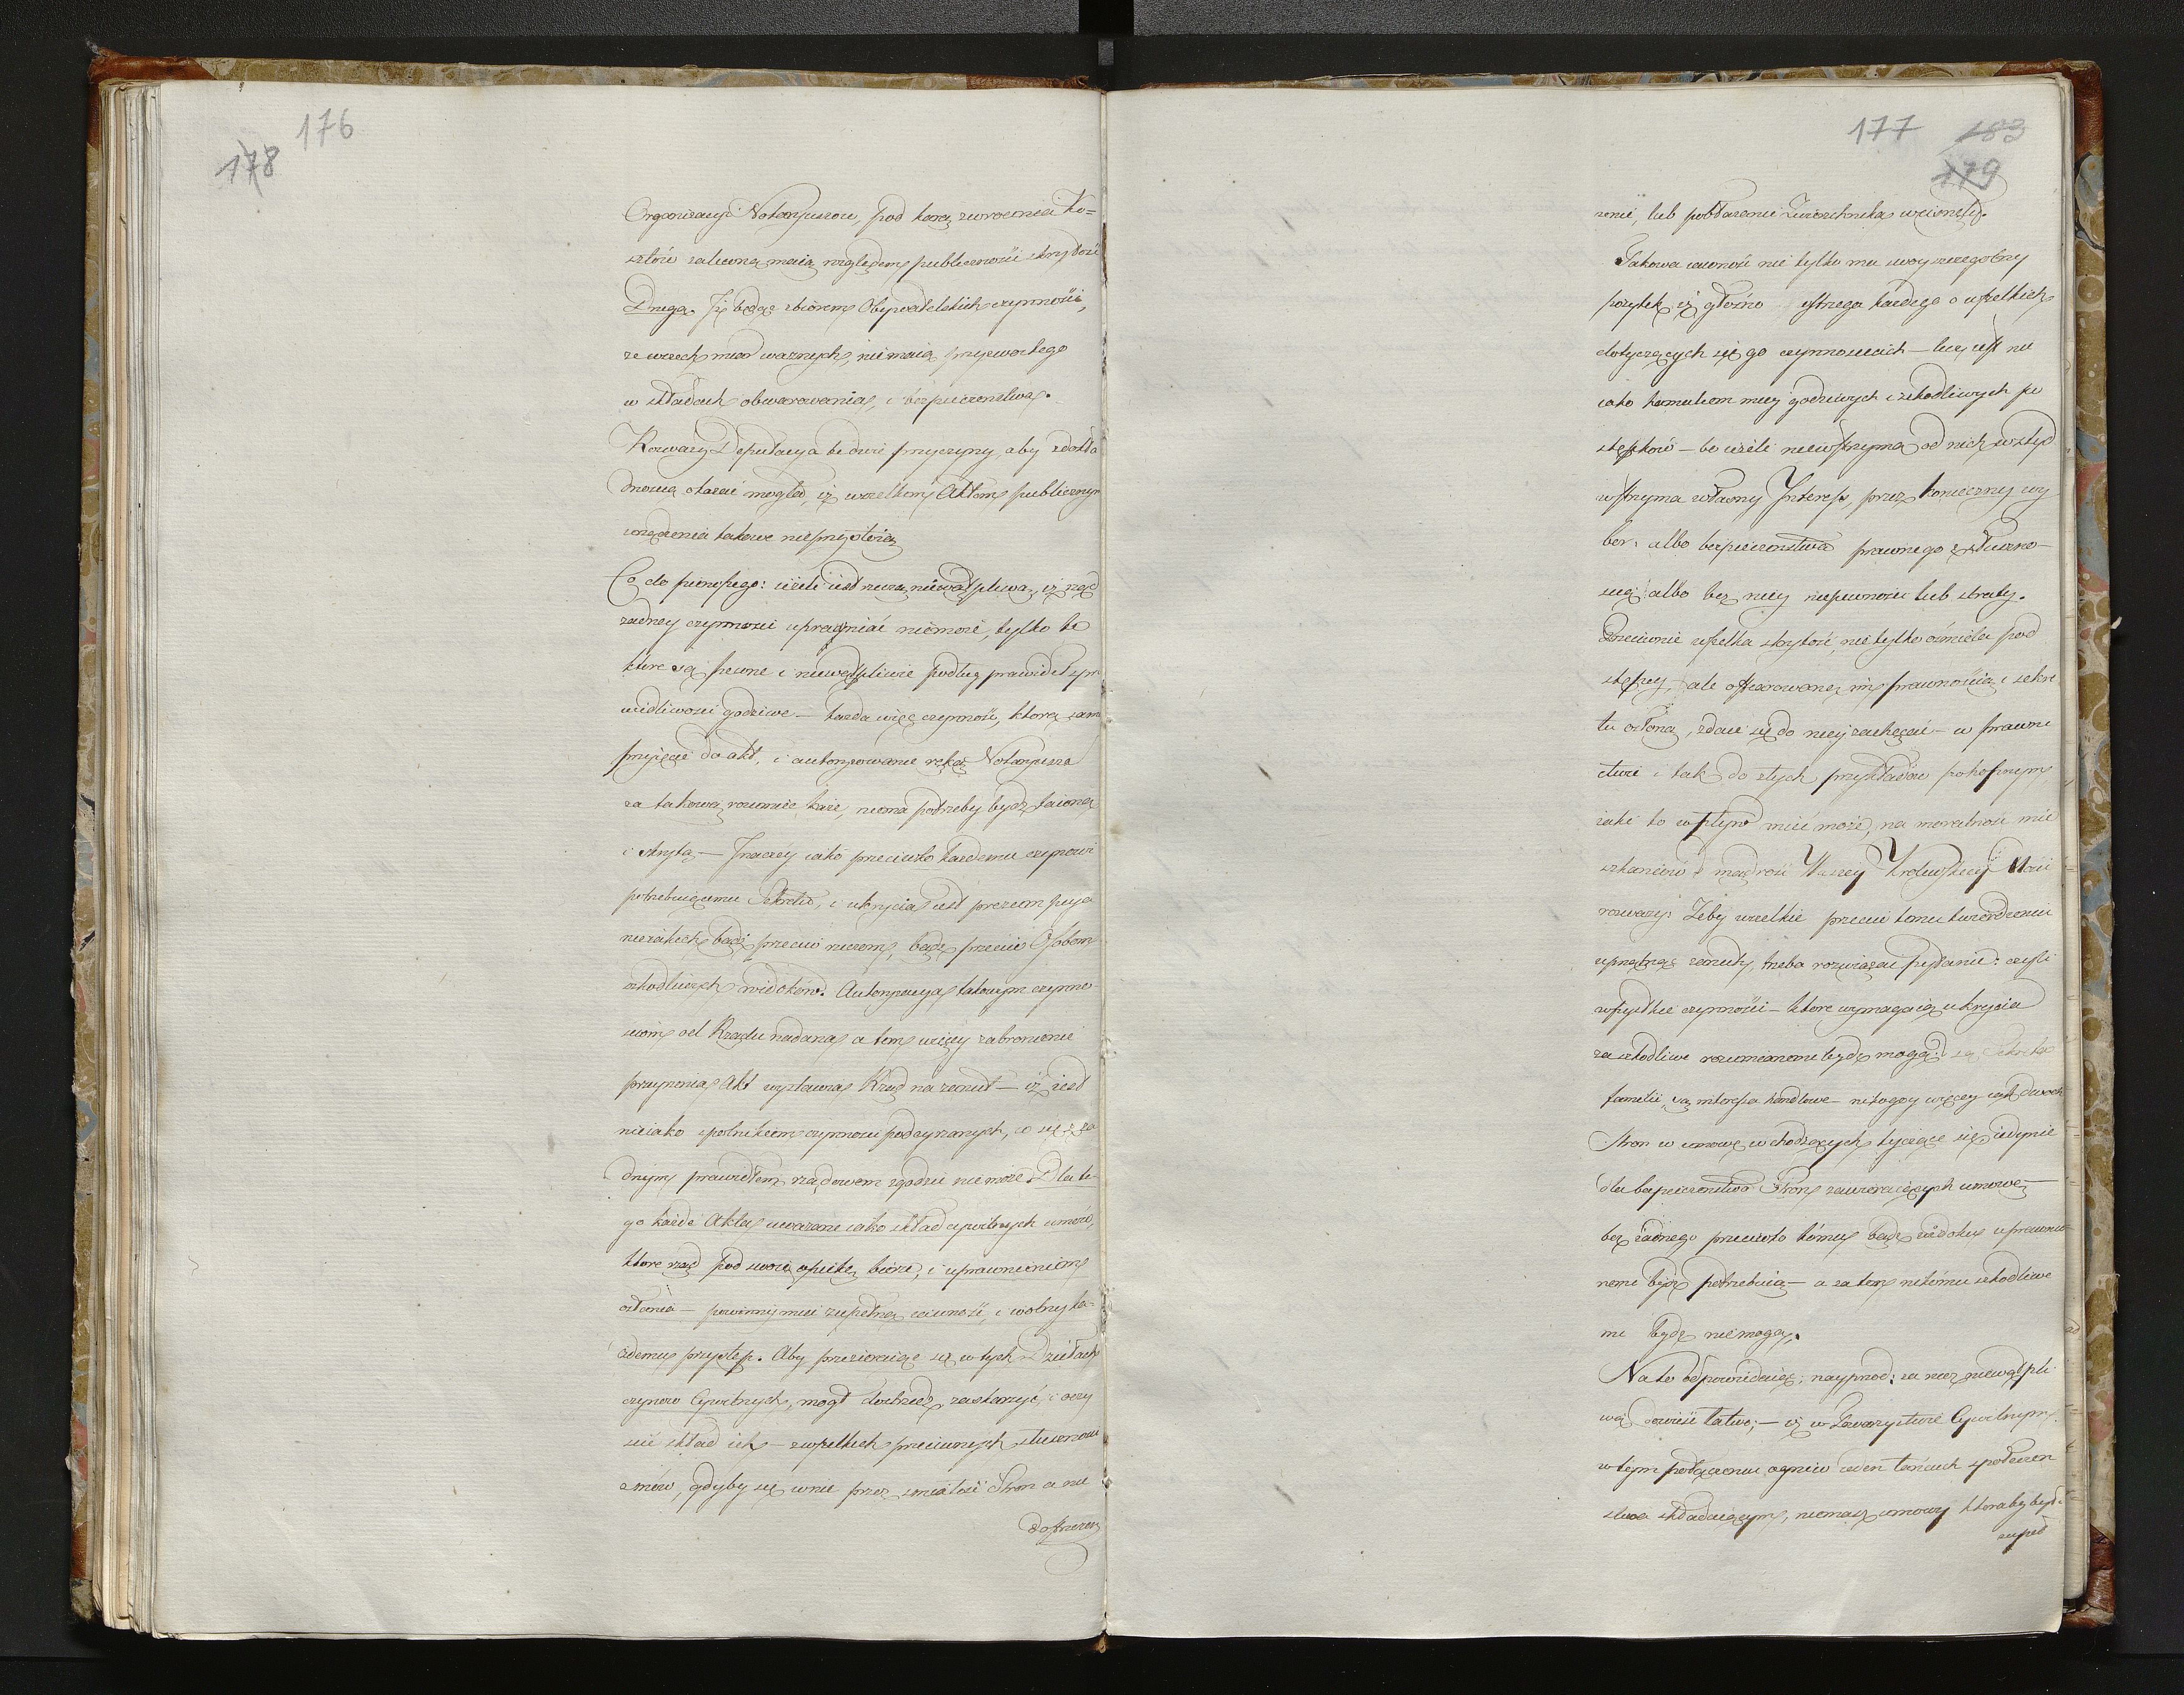 176
178
Organizacyi Notaryuszow, pod karą zwrocenia ko=
sztów zaleconą maią względem publicznosci skrytość
Druga. Iż będąc zbiorem Obywatelskich czynności,
ze wszech miar waznych, niemaią przyzwoitego
w składach obwarowania, i bezpieczenstwa.
Rozwazy Deputacya te dwie przyczyny, aby zdokła
dnoscią okazać mogła, iż wszelkim Aktom publicznym
urządzenia takowe nieprzystoią
Co do pierwszego: ieżeli iest rzeczą niewątpliwą, iż rząd
zadney czynnosci uprawniać niemoże, tylko te
które są pewne i niewątpliwie podług prawideł spra
wiedliwosci godziwe — kazda więc czynność, którą samo
przyięcie do akt, i autoryzowanie ręką Notaryusza
za takową rozumieć każe, niema potrzeby bydź taioną
i skrytą — Inaczey iako przeciwko kazdemu czynowi
potrzebuiącemu Sekretu, i ukrycia iest prezumpcya
nieiakich bądź przeciw rzeczom, bądź przeciw Osobom
szkodliwych widoków. Autoryzacya takowym czynno
sciom od Rządu nadana, a tem więcey zabronienie
przeyrzenia Akt wystawia Rząd na zarzut — iż iest
nieiako spolnikiem czynnosci podeyrzanych, co się z ża
dnym prawidłem rządowem zgodzić niemoże. Dla te-
go każde Akta uwazane iako skład cywilnych umów,
ktore rząd pod swoią opiekę bierze, i uprawnieniem
osłania — powinny mieć zupełną iawność, i wolny ka-
żdemu przystęp. Aby przezieraiąc się w tych Działach
czynow Cywilnych, mogł dostrzedz, zaskarzyć, i oczy
scić skład ich — z wszelkich przeciwnych słusznosci
umów, gdyby się w nie przez smiałość Stron a nie
dostrzeze
177 183
179
zenie, lub pobłażenie Zwierzchnika wcisnęły.
Takowa iawność nie tylko ma swoy szczegolny
pożytek iż głośno ostrzega kazdego o wszelkich
dotyczących się go czynnosciach — lecz iest nie
iako hamulcem mniey godziwych i szkodliwych po
stępków — bo ieżeli niewstrzyma od nich wstyd
wstrzyma własny Interess, przez konieczny wy
bor: albo bezpieczenstwa prawnego z słuszno-
scią: albo bez niey niepewnosci lub straty.
Przeciwnie wszelka skrytość, nie tylko osmiela pod
stępcy, ale ofiarowaną im prawnością i sekre
tu osłoną, zdaie się do niey zachęcać — w prawni
ctwie i tak do złych przykładów pohopnym
iaki to wpływ mieć może, na moralność mie
szkanców mądrość Waszey Krolewskiey Mości
rozwazy: Zeby wszelkie przeciw temu twierdzeniu
uprzątnąć zarzuty, trzeba rozwiązać pytanie: czyli
wszystkie czynności — ktore wymagaią ukrycia
za szkodliwe rozumianemi bydź mogą? są Sekreta
familii, są interessa handlowe — nikogoy więcey iak dwoch
Stron w umowę wchodzących tyczące się iedynie
dla bezpieczenstwa Stron zawieraiących umowę —
bez żadnego przeciwko komu bądź widoku uprawnio
nemi bydź potrzebuią — a za tem nikomu szkodliwe
mi bydź niemogą.
Na to odpowiedaiąc; nayprzod: za rzecz niewątpli
wą dowieść łatwo; — iż w Towarzystwie Cywilnym
w tym połączeniu ogniw ieden łańcuch społeczen
stwa składaiącym, niemasz umowy ktoraby bydź
zupeł